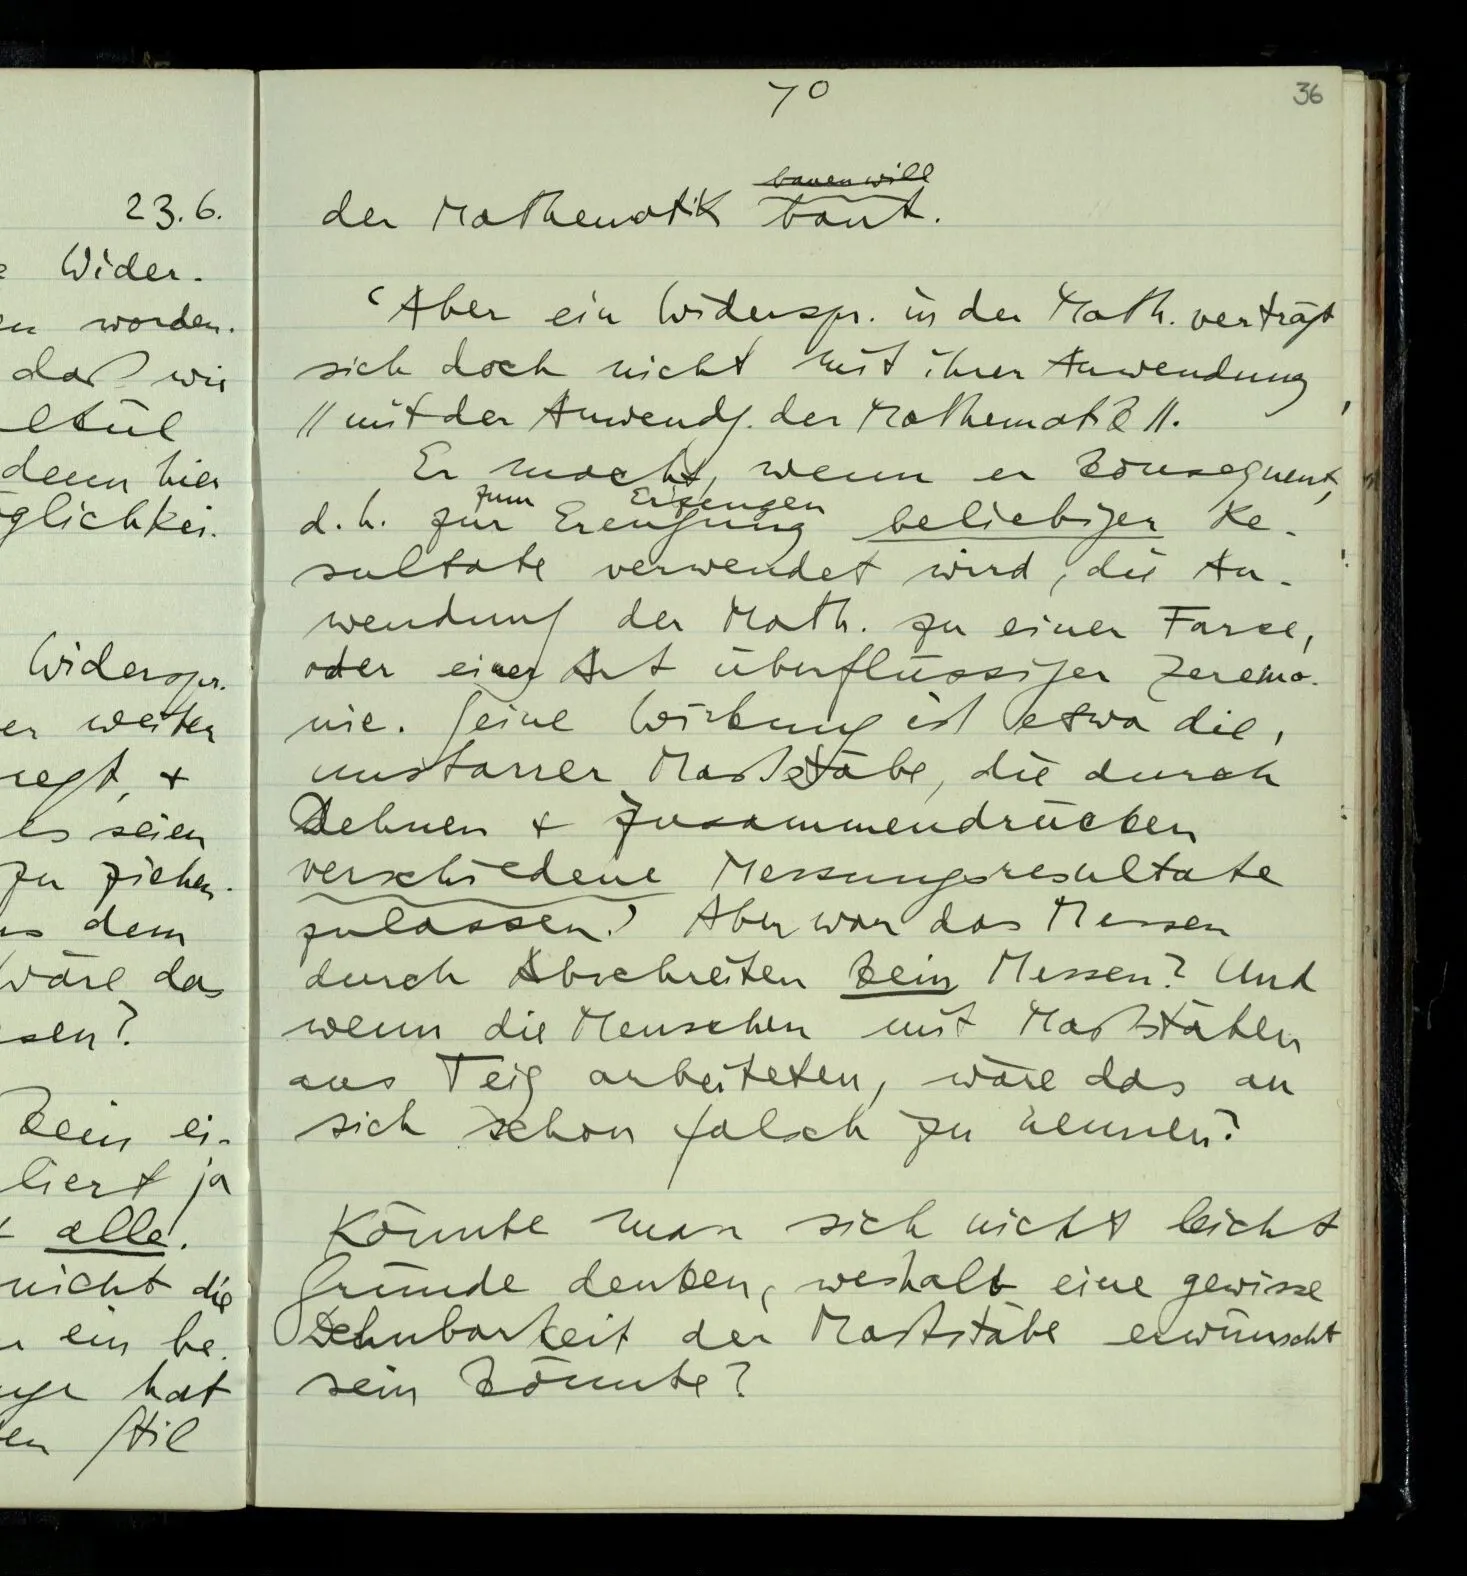 23.6.
Wider-
worden.
daß wir
denn hier
glichkei-
Widerspr.
er weiter
regt, +
es seien
zu ziehen.
dem
wäre das
sen?
kein ei-
liert ja
alle.
nicht die
ein be-
hat
Stil
70
36
bauen will
der Mathematik baut.
‘Aber ein Widerspr. in der Math. verträgt
sich doch nicht mit ihrer Anwendung
// mit der Anwendg. der Mathematik //.
Er macht, wenn er konsequent,
zum Erzeugen
d.h. zur Erzeugung beliebiger Re-
sultate verwendet wird, die An-
wendung der Math. zu einer Farce,
oder einer Art überflüssiger Zeremo-
nie. Seine Wirkung ist etwa die,
unstarrer Maßstäbe, die durch
Dehnen + Zusammendrücken
verschiedene Messungsresultate
zulassen.’ Aber war das Messen
durch Abschreiten kein Messen? Und
wenn die Menschen mit Maßstäben
aus Teig arbeiteten, wäre das an
sich schon falsch zu nennen?
Könnte man sich nicht leicht
Gründe denken, weshalb eine gewisse
Dehnbarkeit der Maßstäbe erwünscht
sein könnte?